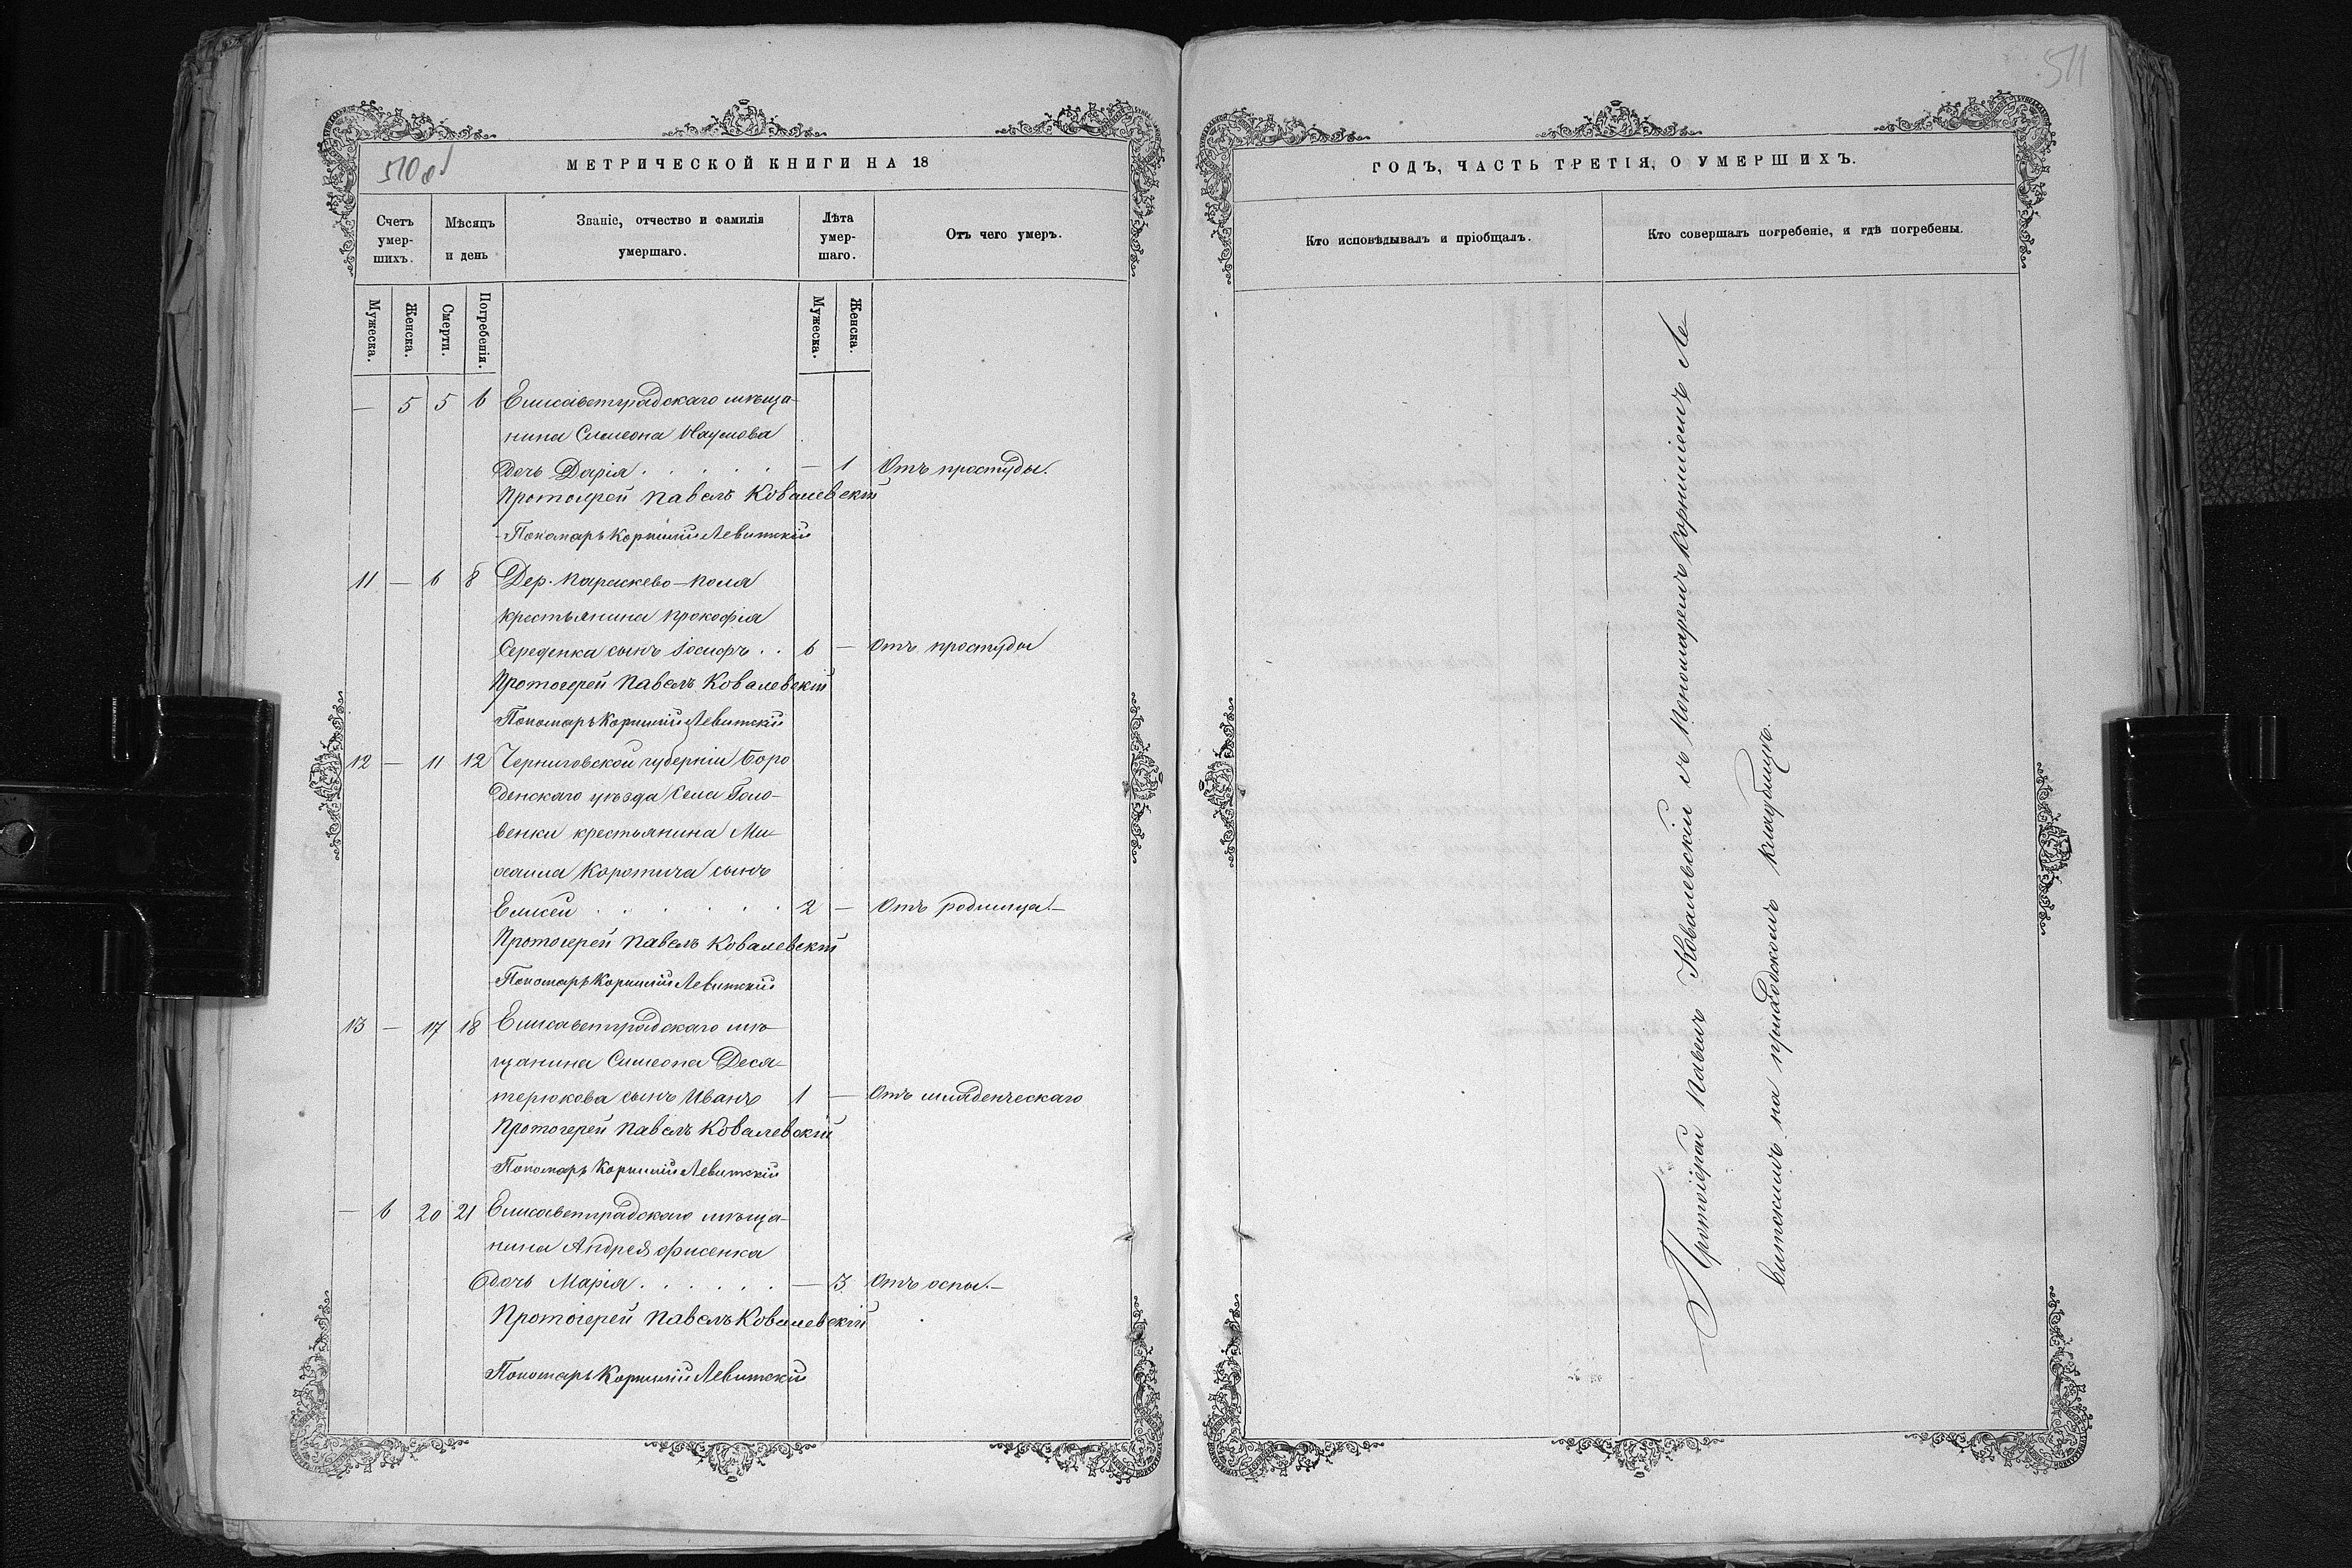 510 об
МЕТРИЧЕСКОЙ КНИГИ НА 18
Счетъ умер-шихъ.
Мѣсяцъ и день
Званіе, отчество и фамилія умершаго.
Лѣта умер-шаго.
Отъ чего умеръ.
Мужеска.
Женска.
Смерти.
Погребенія.
Мужеска.
Женска.
— 5 5 6 Елисаветградскаго мѣща-
нина Симеона Наумова
дочь Дарія . . . . . — 1 Отъ простуды.
Протоіерей Павелъ Ковалевскій
Пономарь Корнилій Левитскій
11 — 6 8 Дер. Параскево-поля
крестьянина Прокофія
Середенка сынъ Іосифъ . . 6 — Отъ простуды
Протоіерей Павелъ Ковалевскій
Пономарь Корнилій Левитскій
12 — 11 12 Черниговской губерніи Боро
денскаго уѣзда села Голо-
венки крестьянина Ми-
хаила Коротича сынъ
Елисей . . . . . . 2 — Отъ родимца.—
Протоіерей Павелъ Ковалевскій
Пономарь Корнилій Левитскій
13 — 17 18 Елисаветградскаго мѣ-
щанина Симеона Деся-
терюкова сынъ Иванъ 1 — Отъ младенческаго
Протоіерей Павелъ Ковалевскій
Пономарь Корнилій Левитскій
— 6 20 21 Елисаветградскаго мѣща-
нина Андрея Фисенка
дочь Марія . . . . . . — 3 Отъ оспы.—
Протоіерей Павелъ Ковалевскій
Пономарь Корнилій Левитскій
511
ГОДЪ, ЧАСТЬ ТРЕТІЯ, О УМЕРШИХЪ.
Кто исповѣдывалъ и пріобщалъ.
Кто совершалъ погребеніе, и гдѣ погребены.
Протоіерей Павелъ Ковалевскій съ Пономаремъ Корниліемъ Ле
витскимъ на приходскомъ кладбищѣ.